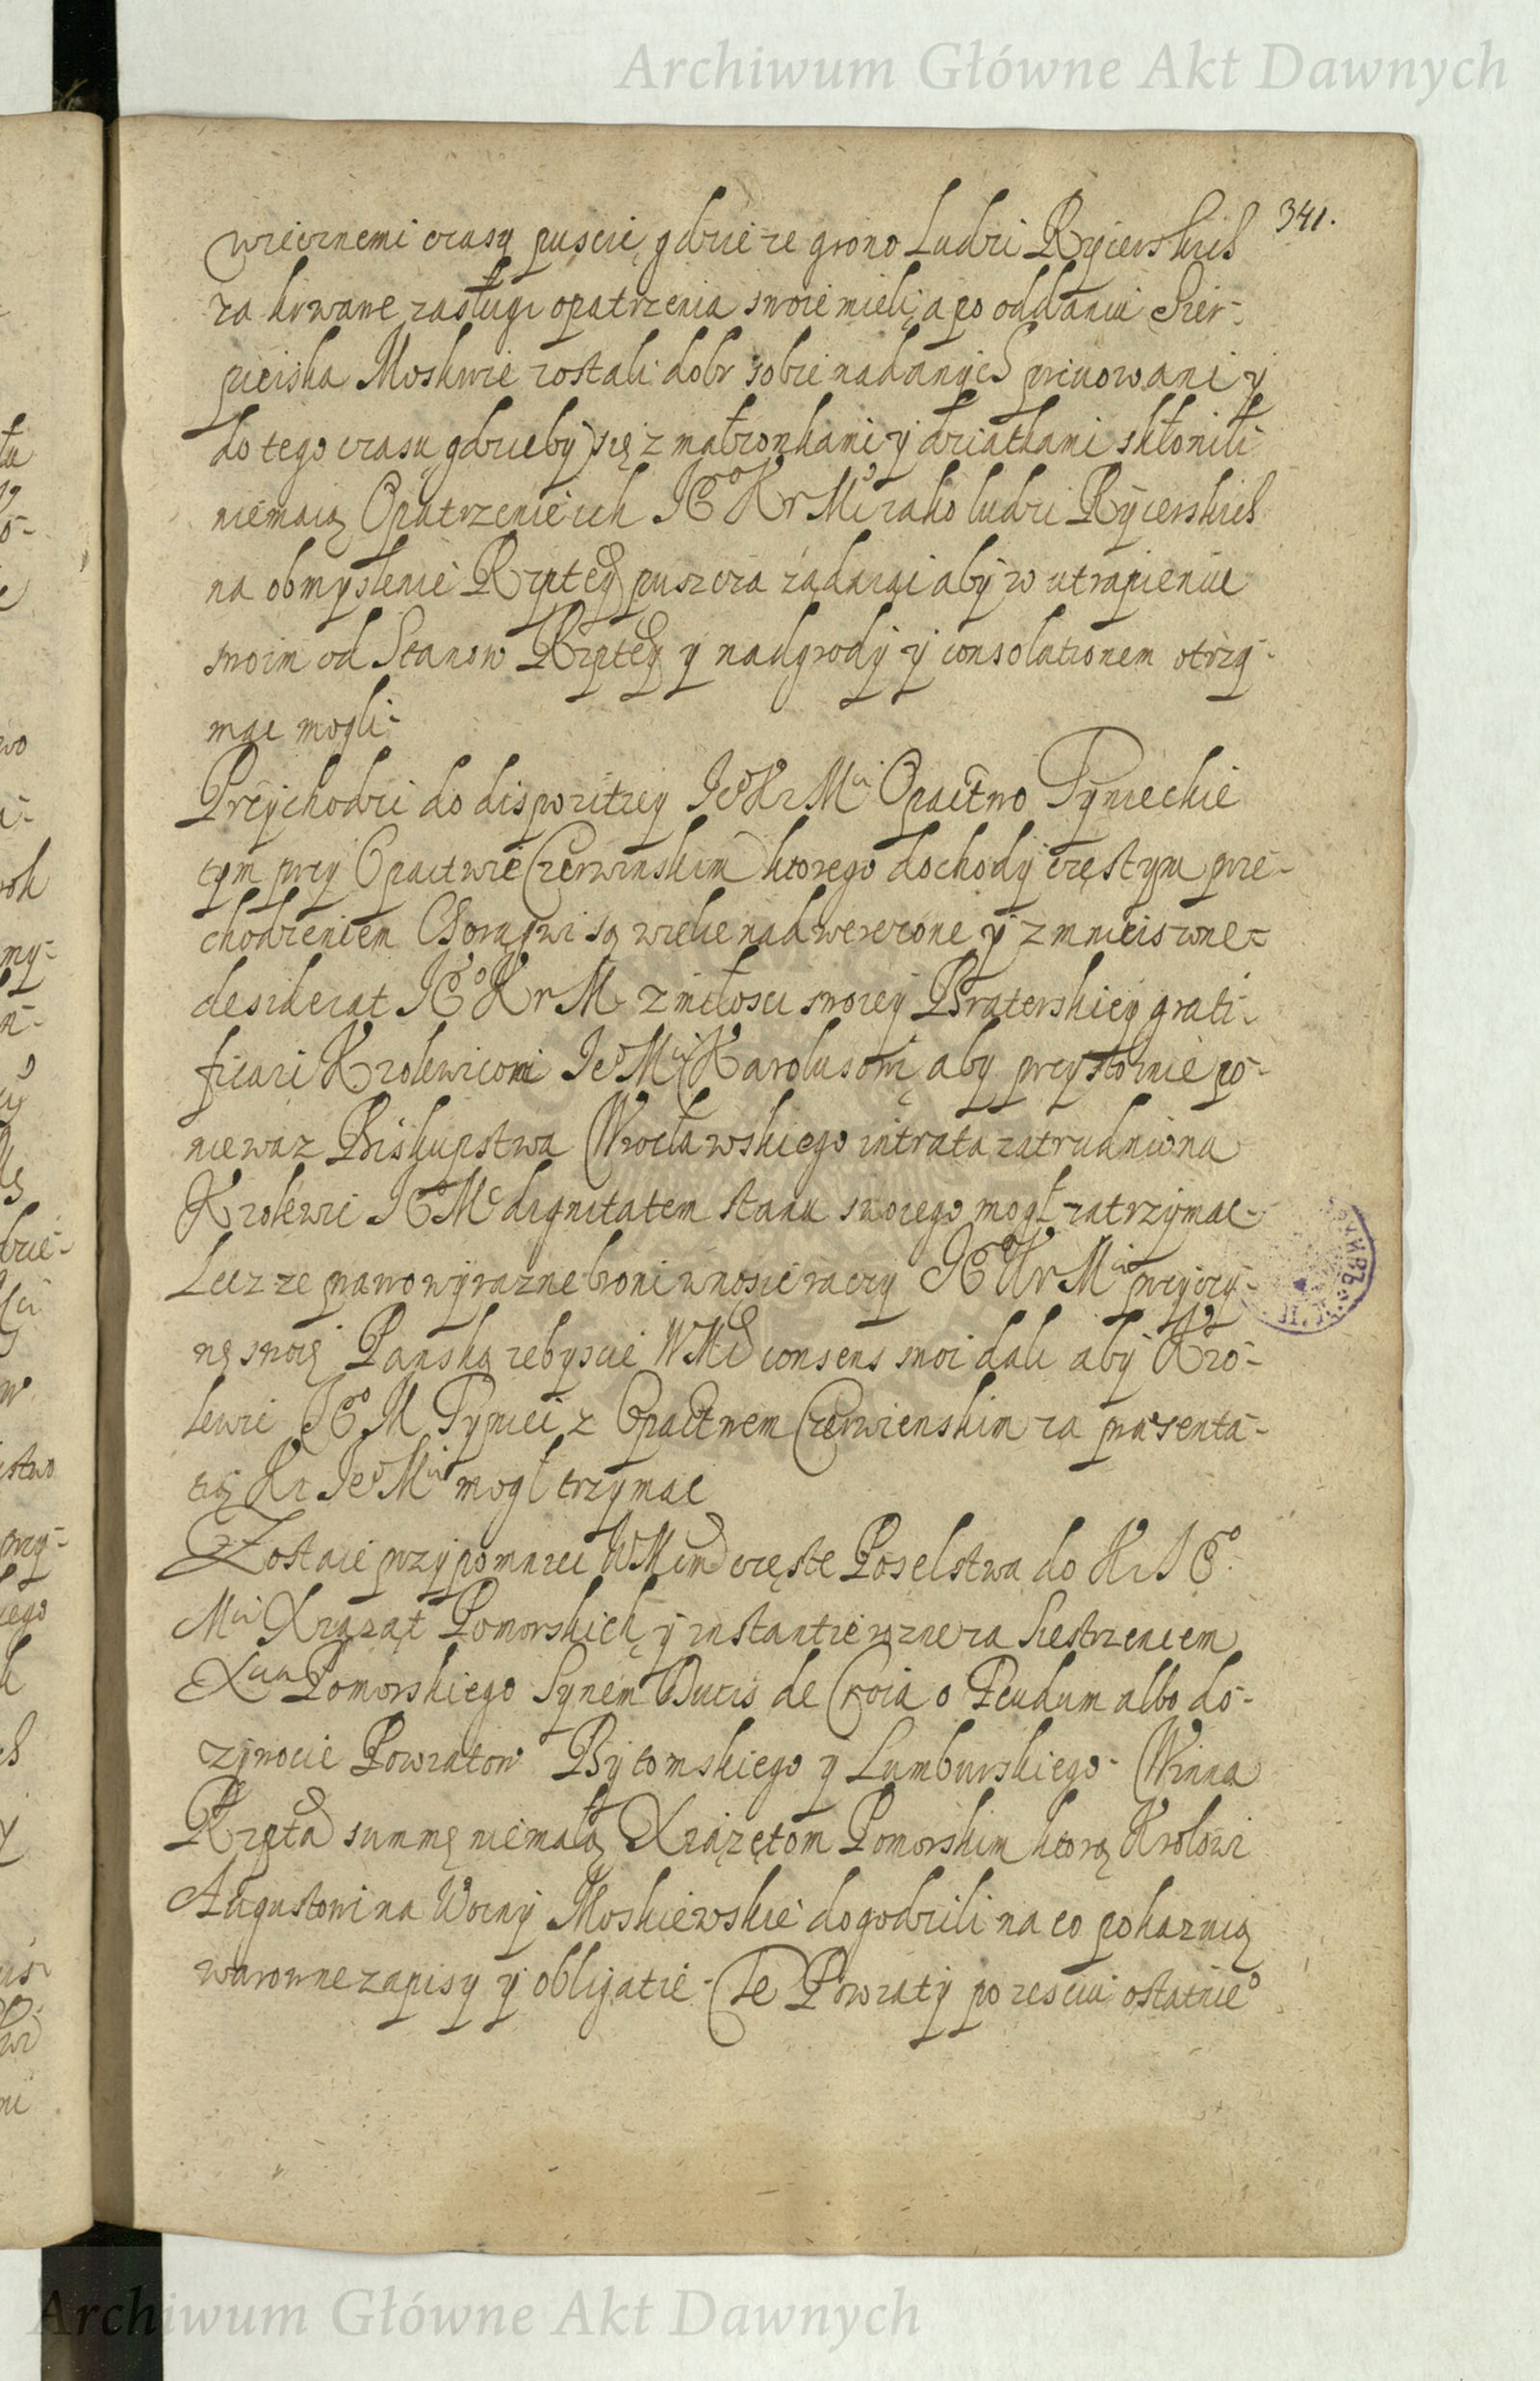 Archiwum Główne Akt Dawnych
341.
wiecznemi czasy puscić, gdzie ze grono Ludzi Rycerskich
za krwawe zasługi opatrzenia swoie mieli, a po oddaniu Sier-
pieiska Moskwie zostali dobr sobie nadanych priuowani y
do tego czasu gdzieby się z małzonkami y dziatkami skłonili
niemaią Opatrzenie ich JE° Kr Mci iako ludzi Rycerskich
na obmyslenie Rzptey puszcza ządaiąc aby w utrapieniu
swoim od Stanow Rzptey y nadgrody y consolationem otrzy-
mac mogli-
Przychodzi do dispozitiey Je° Kr Mci Opactwo Tynieckie
tym przy Opactwie Czerwinskim ktorego dochody częstym prze-
chodzeniem Chorągwi są wielce nadwerezone y zmnieiszone-
desiderat JE° Kr M z miłosci swoiey Braterskiey grati-
ficari Krolewicowi Je° Mci Karolusowi, aby przystoinie po-
niewaz Biskupstwa Wrocławskiego intrata zatrudniona
Krolewic JE° Mc dignitatem stanu swoiego mogł zatrzymac-
Lecz ze prawo wyrazne broni wnosic raczy JE° Kr Mci przyczy-
nę swoię Panską zebyscie WMć consens swoi dali aby Kro-
lewic JE° M Tyniec z Opactwem Czerwienskim za præsenta-
tią Kr Je° Mci mogł trzymac
Zostaie przypomniec WMciom częste Poselstwa do Kr JE°
Mci Xiąząt Pomorskich, y instantie rozne za Siestrzencem
Xcia Pomorskiego Synem Ducis de Croia o Feudum albo do-
zywocie Powiatow Bytomskiego y Lumburskiego- Winna
Rzpta summę niemałą Xiązętom Pomorskim ktorą Krolowi
Augustowi na Woiny Moskiewskie dogodzili na co pokazuią
warowne zapisy y obligatie- Te Powiaty po zesciu ostatnie°
Archiwum Główne Akt Dawnych